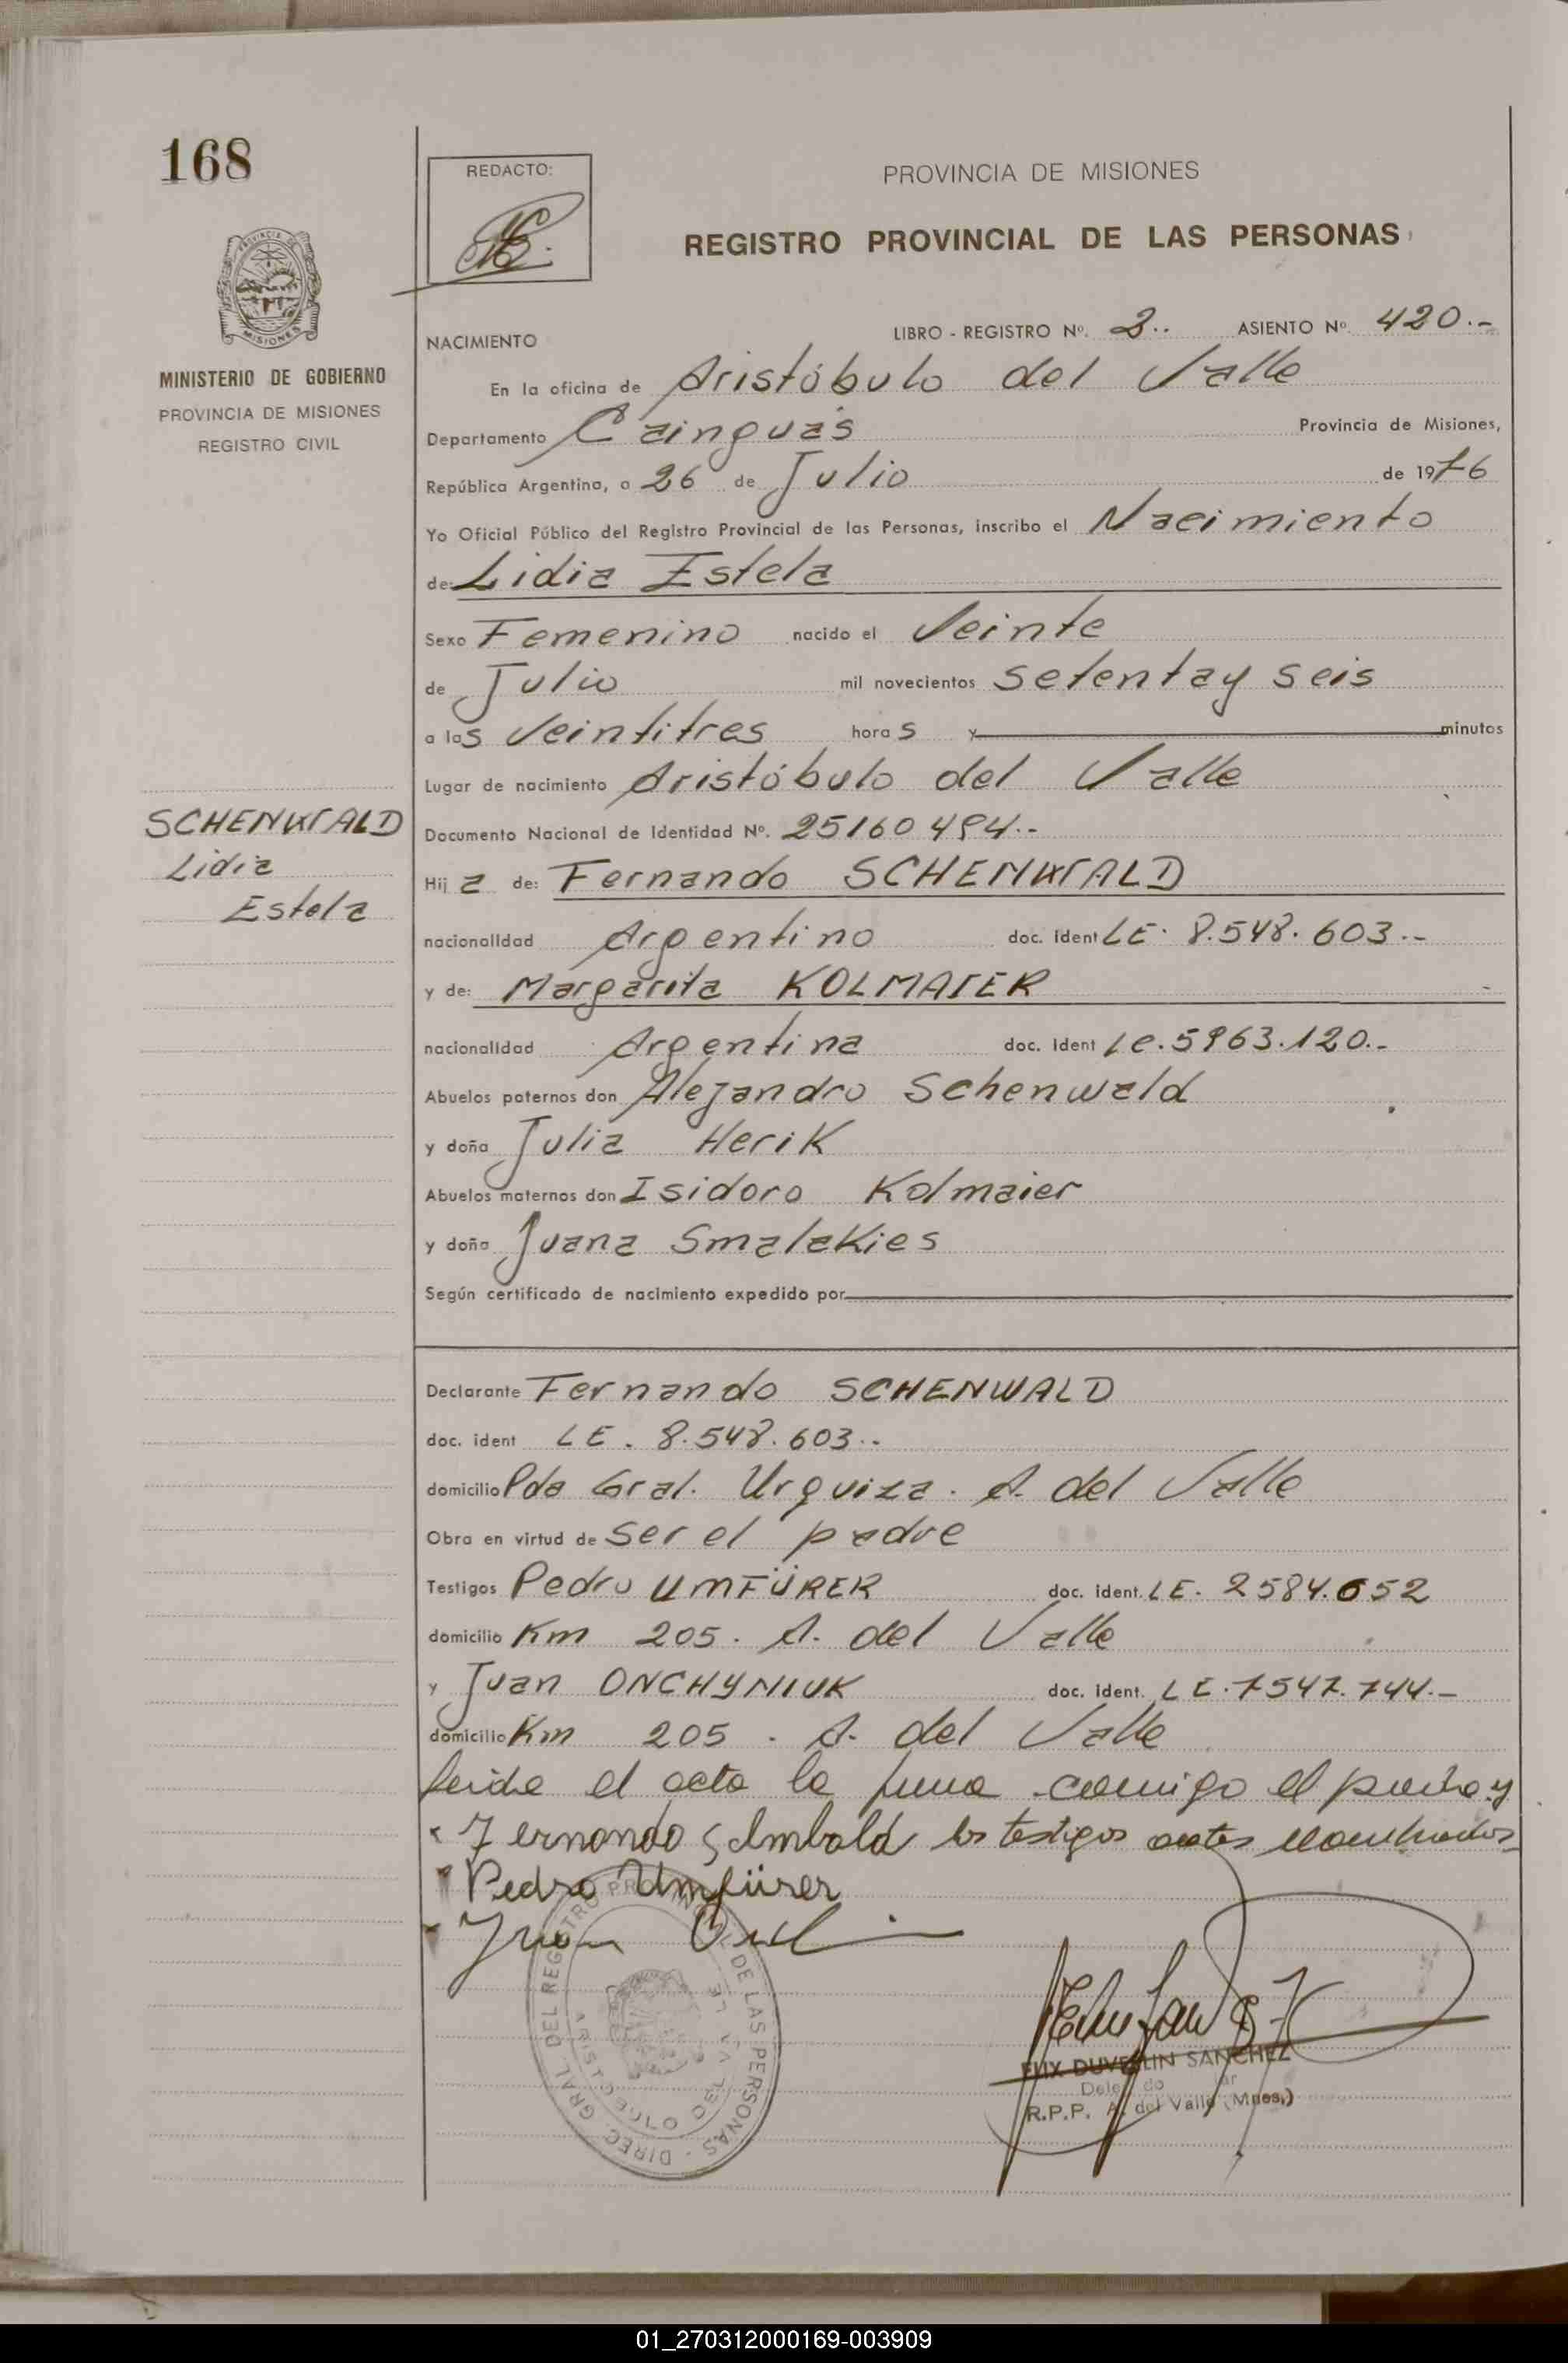 168
REDACTO:
PROVINCIA DE MISIONES
REGISTRO PROVINCIAL DE LAS PERSONAS
MISIONES
MINISTERIO DE GOBIERNO
PROVINCIA DE MISIONES
REGISTRO CIVIL
NACIMIENTO
LIBRO - REGISTRO Nº. 2.. ASIENTO Nº. 420.-
En la oficina de Aristóbulo del Valle
Departamento Cainguás Provincia de Misiones,
República Argentina, a 26 de Julio de 1976
Yo Oficial Público del Registro Provincial de las Personas, inscribo el Nacimiento
de: Lidia Estela
Sexo Femenino nacido el Veinte
de Julio mil novecientos setenta y seis
a las Veintitres horas y minutos
Lugar de nacimiento Aristóbulo del Valle
SCHENWALD
Lidia
Estela
Documento Nacional de Identidad Nº. 25160494.-
Hija de: Fernando SCHENWALD
nacionalidad Argentino doc. ident LE. 8.548.603.-
y de: Margarita KOLMAIER
nacionalidad Argentina doc. ident LC. 5963.120.-
Abuelos paternos don Alejandro Schenwald
y doña Julia Herik
Abuelos maternos don Isidoro Kolmaier
y doña Juana Smalakies
Según certificado de nacimiento expedido por
Declarante Fernando SCHENWALD
doc. ident LE. 8.548.603..
domicilio Pda Gral. Urquiza. A. del Valle
Obra en virtud de ser el padre
Testigos Pedro UMFÜRER doc. ident. LE. 2584.652
domicilio Km 205. A. del Valle
y Juan ONCHYNIUK doc. ident. LE. 7547.744.-
domicilio Km 205. A. del Valle
Leida el acta la firma conmigo el padre y
Fernando los testigos antes nombrados
Pedro Umfürer
Juan
FELIX DUVERLIN SANCHEZ
R.P.P. A. del Valle (Mnes.)
DIREC. GRAL DEL REGISTRO PROVINCIAL DE LAS PERSONAS
ARISTOBULO DEL VALLE
01_270312000169-003909